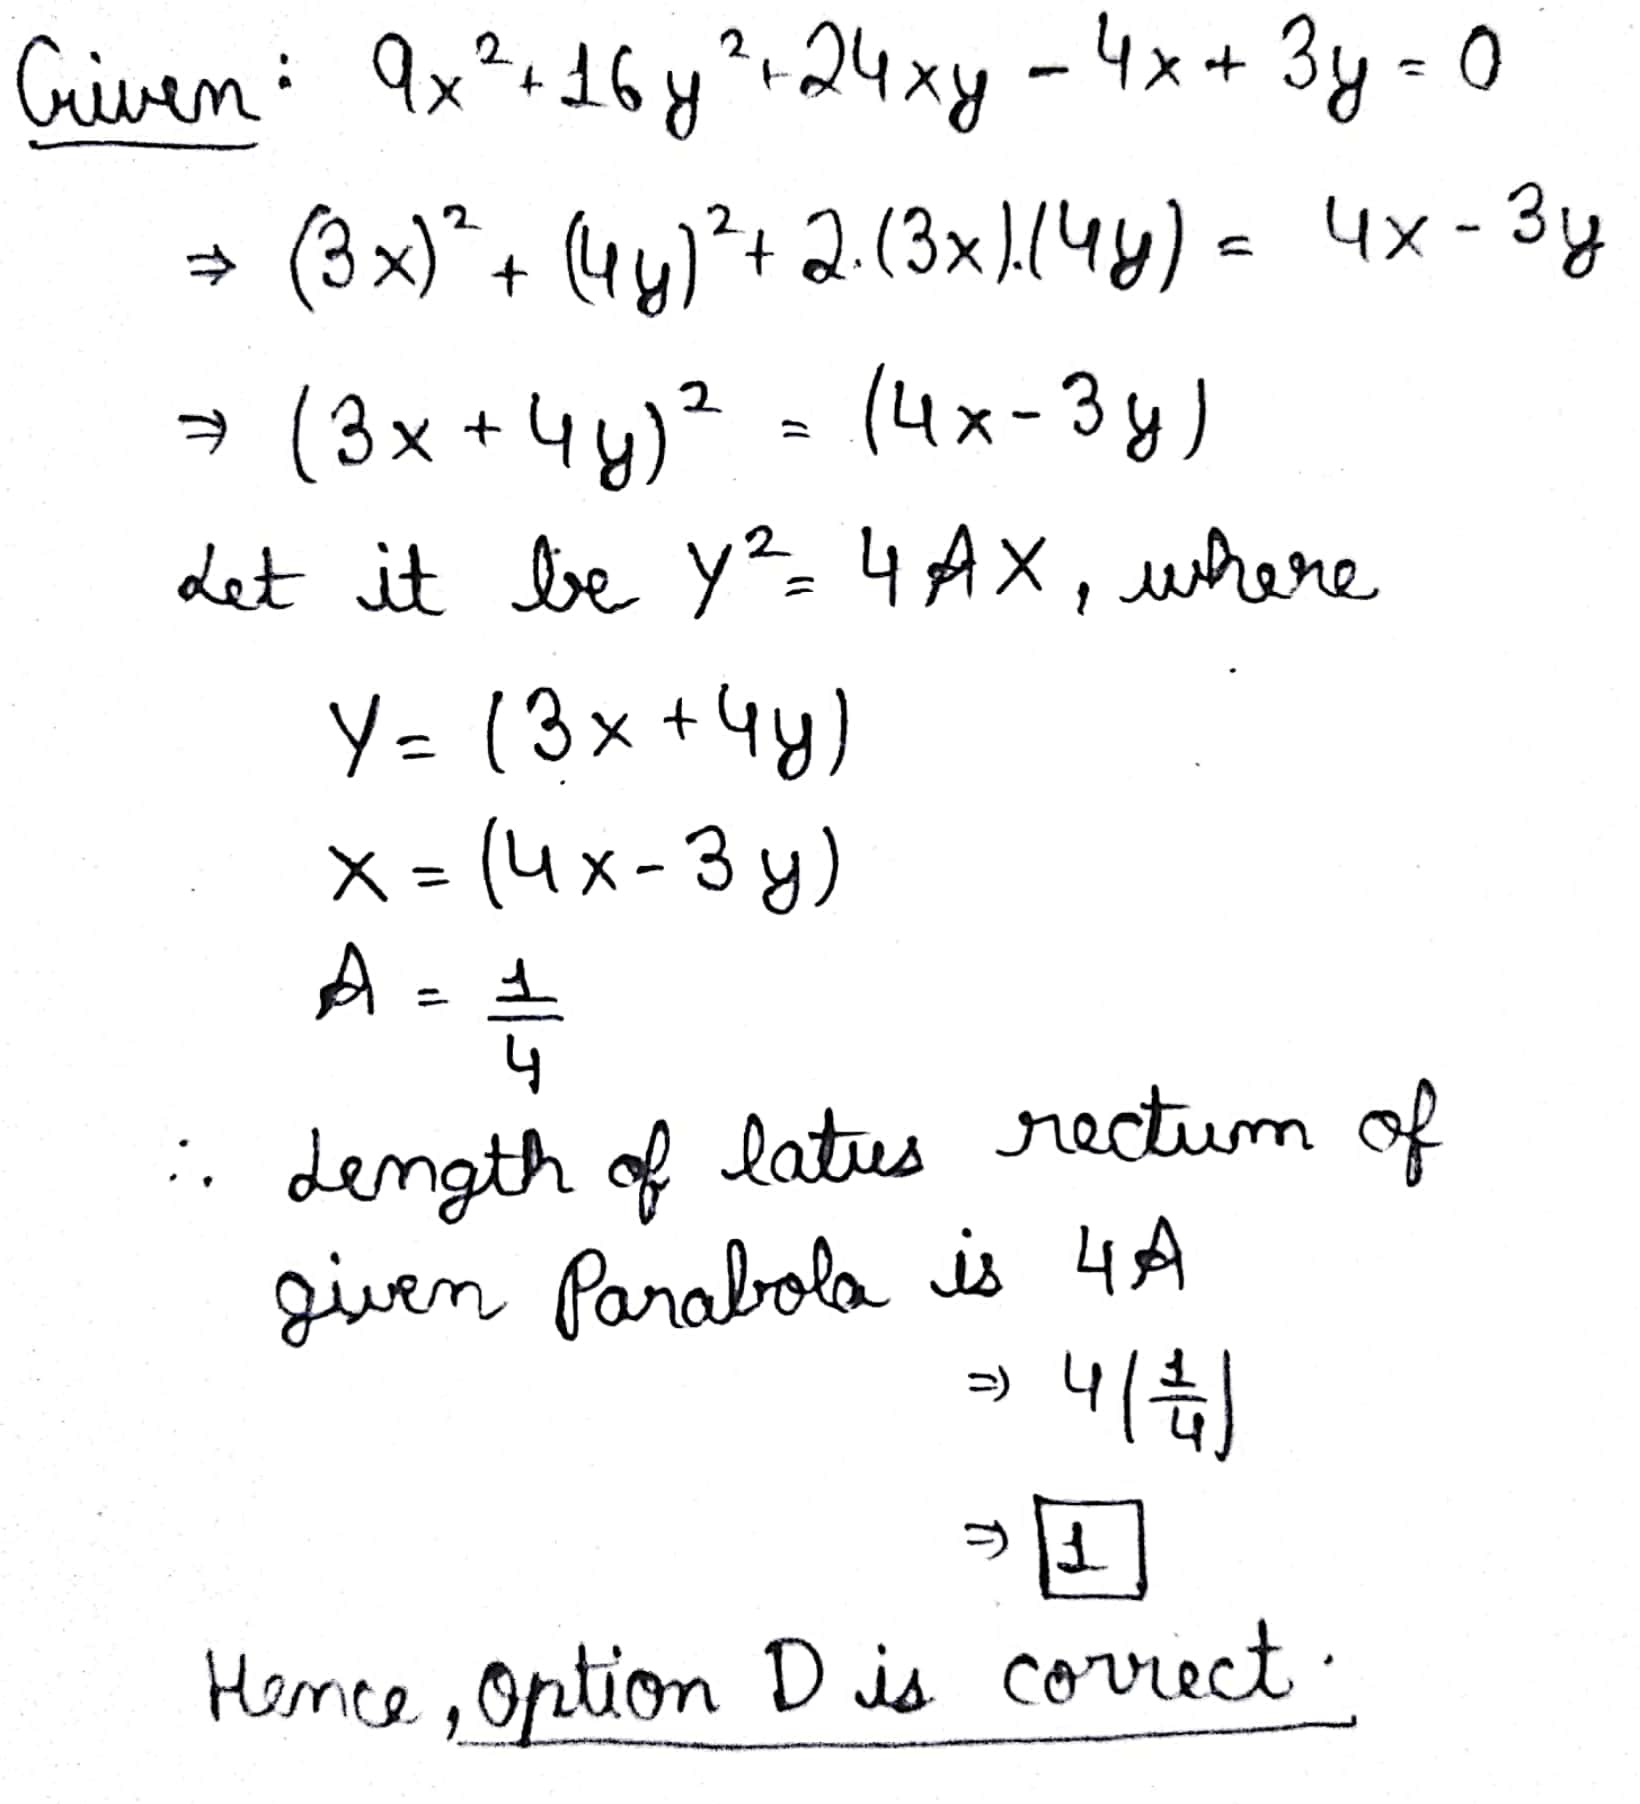 Given: 9x²+16y²+24xy-4x+3y=0
⇒ (3x)²+(4y)²+2.(3x).(4y) = 4x-3y
⇒ (3x+4y)² = (4x-3y)
Let it be Y²=4AX, where
Y=(3x+4y)
X=(4x-3y)
A = 1/4
∴ Length of latus rectum of
given Parabola is 4A
⇒ 4(1/4)
⇒ 1
Hence, Option D is correct.